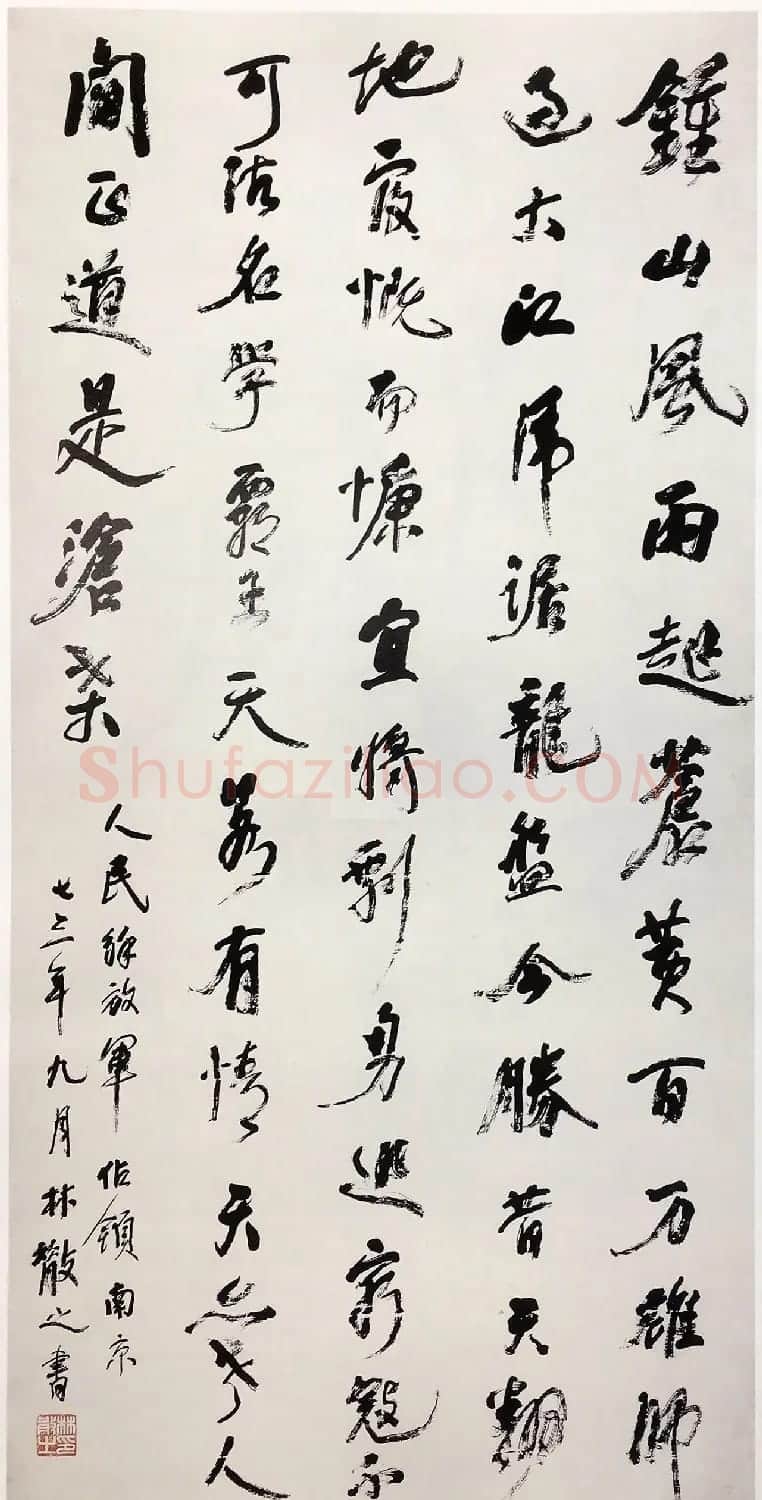 鍾山風雨起蒼黄百万雄師
过大江虎踞龍盤今勝昔天翻
地覆慨而慷宜將剩勇追窮寇不
可沽名學霸王天若有情天亦老人
間正道是滄桑
人民解放軍佔領南京
七三年九月林散之書
Shufaziliao.COM